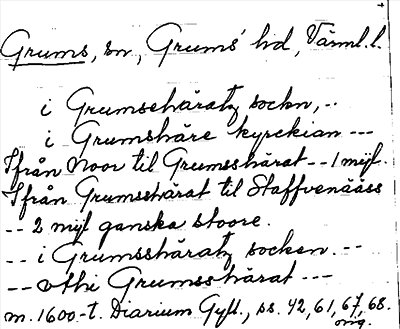 Grums, sn, Grums' hd, Värml. l.
i Grumsehäratz sockn, --
i Grumshäre kyrckian ---
Ifrån Noor til Grumsshärat -- 1 mijl.
Ifrån Grumsshärat til Staffvenääss
-- 2 mijl ganska stoore.
-- i Grumsshäratz socken. --
-- vthi Grumsshärat ---
m. 1600-t. Diarium Gyll., ss. 42, 61, 67, 68.
orig.